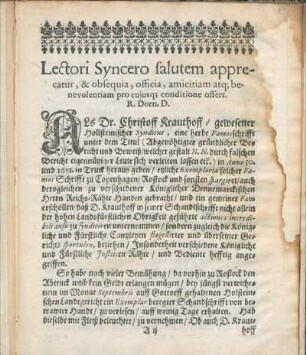 Lectori Syncero salutem appre-
catur, & obsequia, officia, amicitiam atq; be-
nevolentiam pro cujusq; conditione offert.
R. Dorn. D.
ALs Dr. Christoff Krauthoff / gewesener
Hollsteinischer Syndicus, eine herbe Famosschrifft
unter dem Titul / Abgenöhtigter gründlicher Be-
richt und Beweiß welcher gestalt N. N. durch falschen
Bericht eigennütziger Leute sich verleiten lassen etc. / in Anno 50.
und 1651. in Truck heraus geben / etliche Exemplaria solcher Famos
Schrifft zu Copenhagen / Rostock und sonsten spargiret / auch
derogleichen zu verschiedener Königlicher Dennemarckischen
Herrn Reichs-Rähte Handen gebracht / und ein gemeiner Fama
erschollen / daß D. Krauthoff in jetzter Schandschrifft nicht allein
der hohen Landsfürstlichen Obrigkeit geführte actiones incredi-
bili ausu zu sindiciren unternommen / sondern zugleich der König-
liche und Fürstliche Conferenz sugillirter und übersetzter Ge-
richts sportulen, beziehen / Insonderheit verschiedene Königliche
und Fürstliche Justicien Rähte / und Bediente hefftig ange-
griffen.
So habe nach vieler Bemühung / da vorhin zu Rostock den
Abtruck umb kein Geldt erlangen mügen / bey jüngst verwiche-
nem im Monat Septembris auff Gottorff gehaltenen Holstein-
schen Landtgericht ein Exemplar beregter Schandschrifft von be-
wanter Handt / zu verlesen / auff wenig Tage erhalten. Hab
dieselbe mit Fleiß beleuchtet / zu vernehmen / Ob auch D. Kraut-
A ij hoff